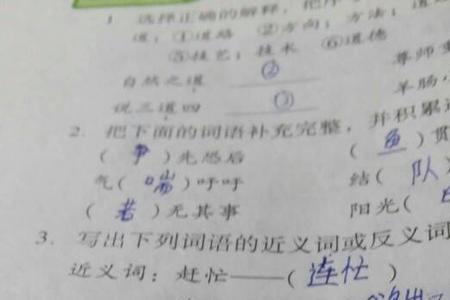 1. 选择正确的解释,把序号
道:①道路 ②方向;方法;道
⑤技艺;技术 ⑥道德
自然之道 ② 尊师
说三道四 ③ 羊肠
2. 把下面的词语补充完整,并积累
(争)先恐后 (鱼)贯
气(喘)吁吁 结(队
(若)无其事 阳光(
3. 写出下列词语的近义词或反义词
近义词:赶忙——(连忙)